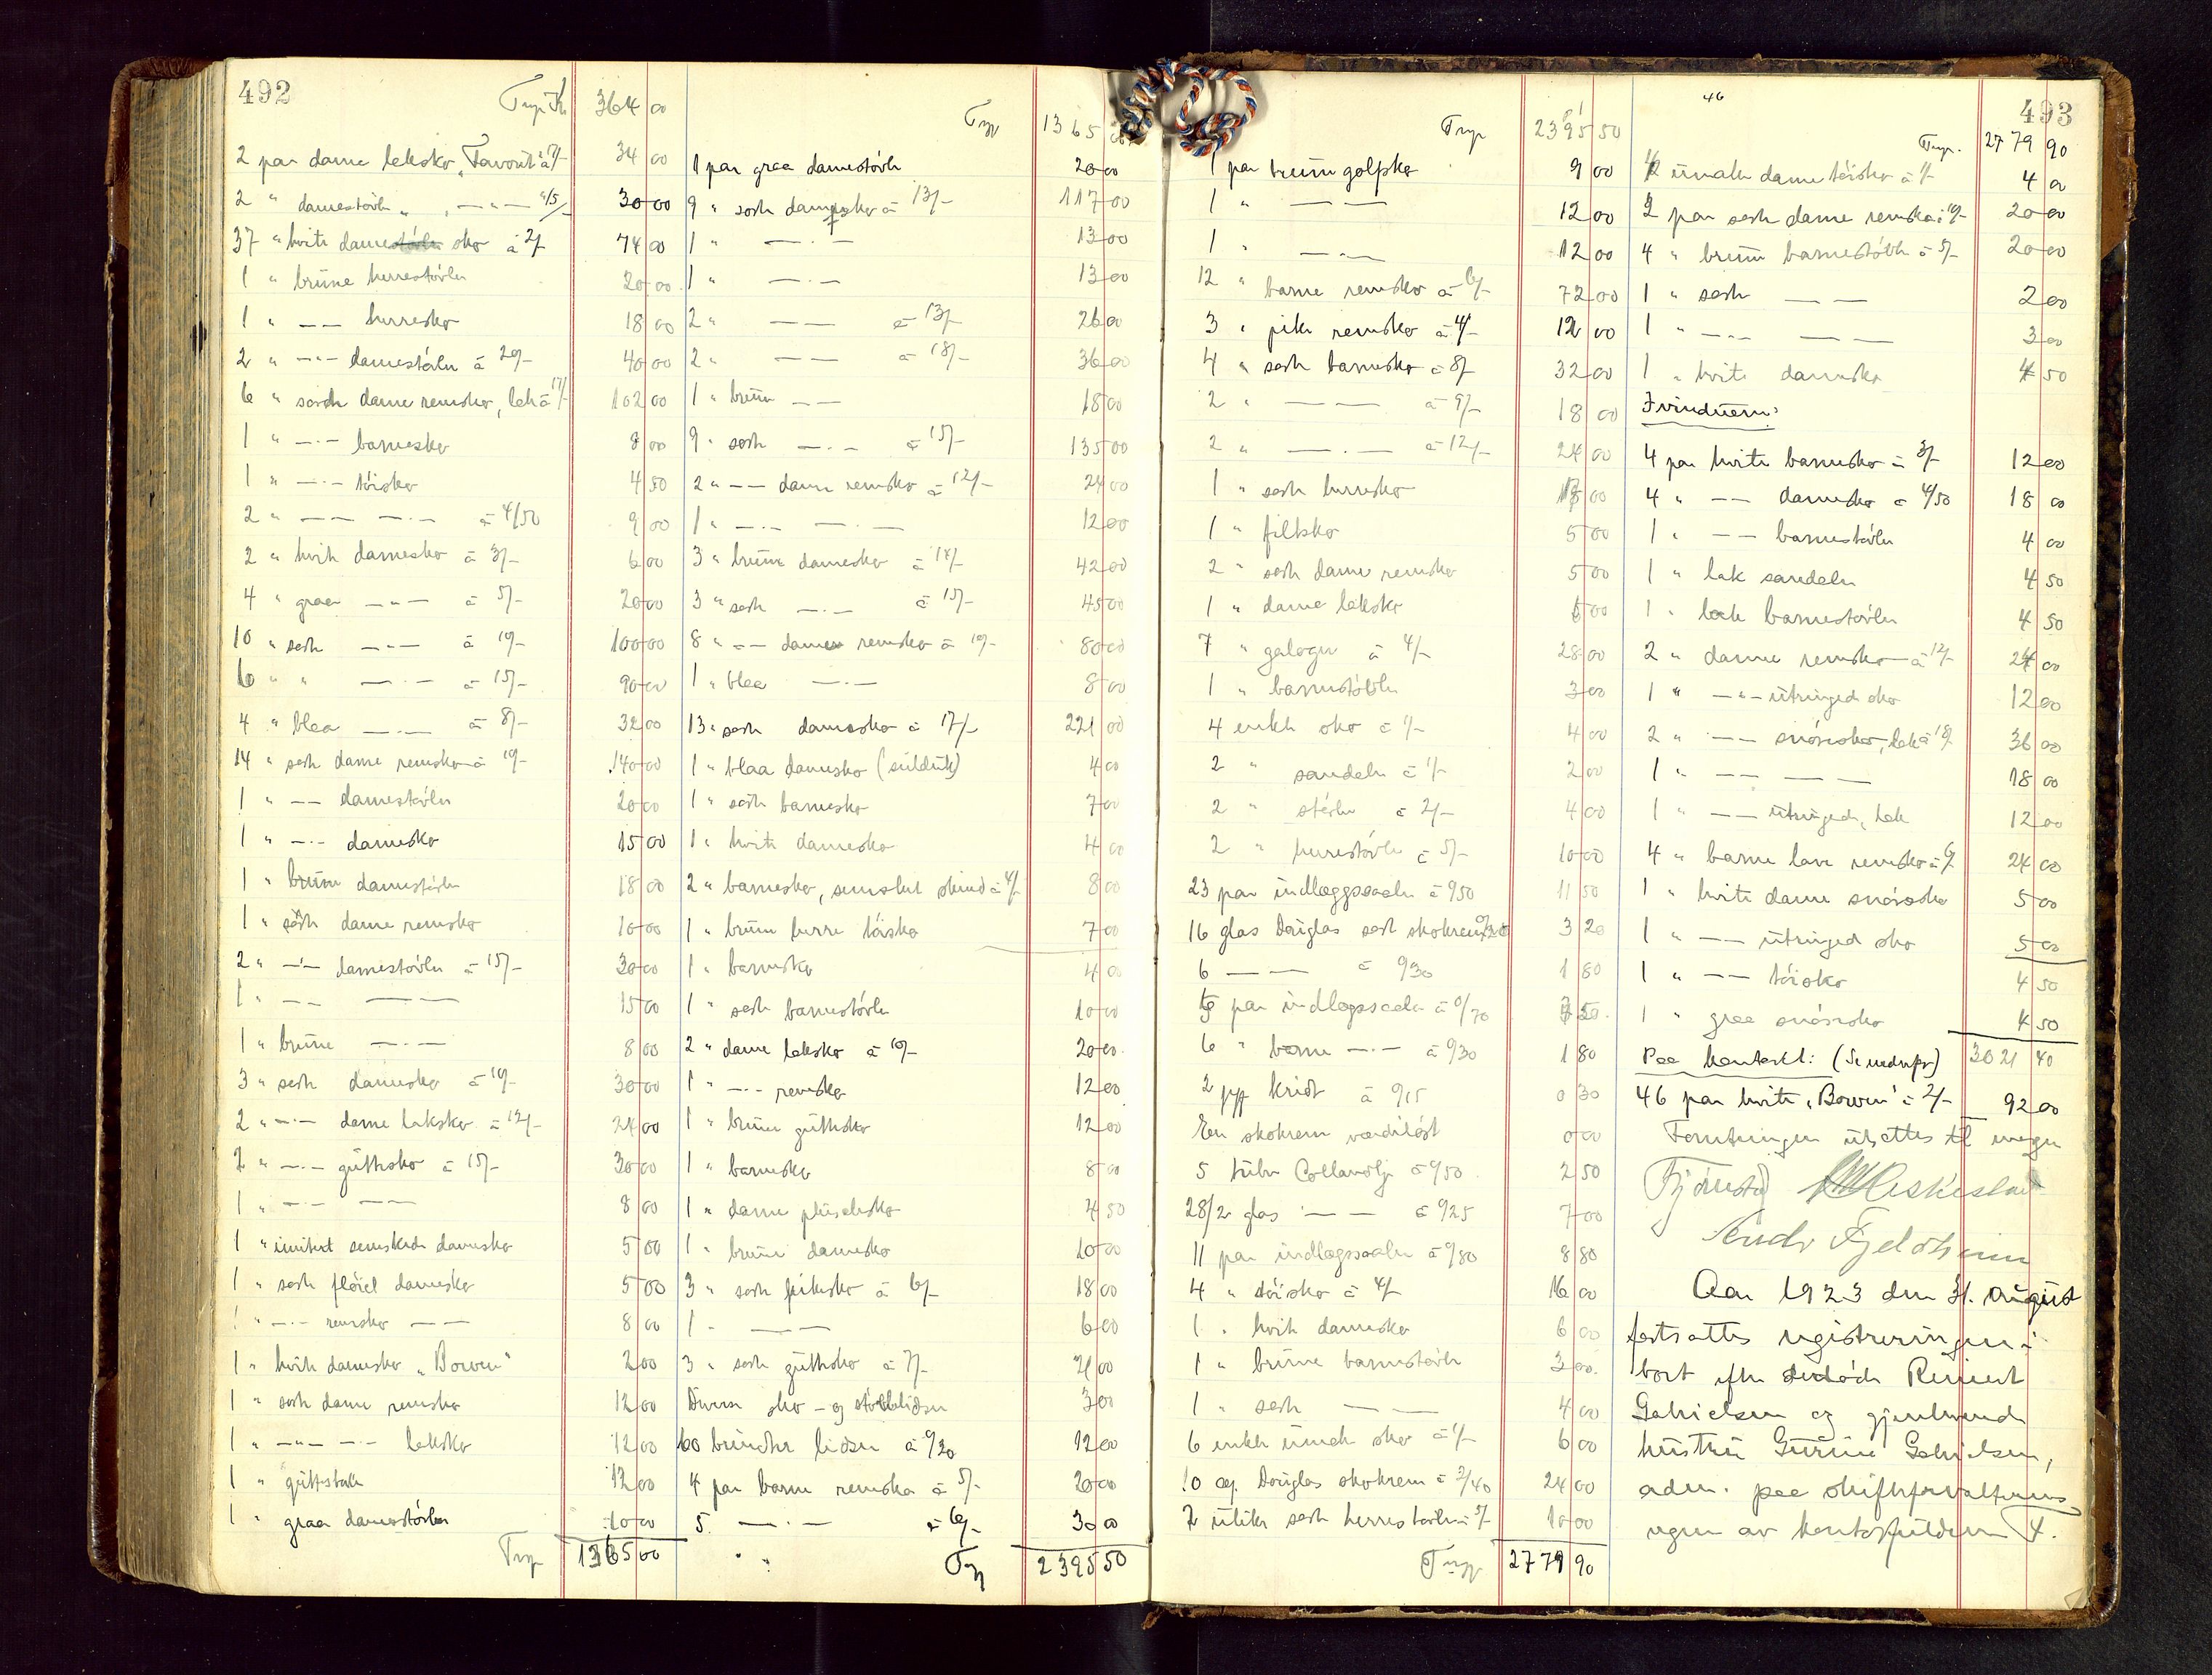 492
Trsp Kr 364 00
2 par dame laksko „Favorit" à 17/- 34 00
2 " damestövler „ -"- à 15/- 30 00
37 " hvite dame sko à 2/- 74 00
1 " brune herrestövler 20 00
1 " -"- herresko 18 00
2 " -"- damestövler à 20/- 40 00
6 " sorte dame remsko, lak à 17/- 102 00
1 " -"- barnesko 8 00
1 " -"- töisko 4 50
2 " -"- -"- à 4/50 9 00
2 " hvite damesko à 3/- 6 00
4 " graa -"- à 5/- 20 00
10 " sorte -"- à 10/- 100 00
6 " " -"- à 15/- 90 00
4 " blaa -"- à 8/- 32 00
14 " sorte dame remsko à 10/- 140 00
1 " -"- damestövler 20 00
1 " -"- damesko 15 00
1 " brune damestövler 18 00
1 " sorte dame remsko 10 00
2 " -"- damestövler à 15/- 30 00
1 " -"- -"- 15 00
1 " brune -"- 8 00
3 " sorte damesko à 10/- 30 00
2 " -"- dame laksko à 12/- 24 00
2 " -"- guttesko à 15/- 30 00
1 " -"- -"- 8 00
1 " imitert semskede damesko 5 00
1 " sorte flöiel damesko 5 00
1 " -"- remsko -"- 8 00
1 " hvite damesko „Bowen" 2 00
1 " sorte dame remsko 12 00
1 " -"- -"- laksko 12 00
1 " guttestövler 12 00
1 " graa damestövler 10 00
Trsp 1365 00
Trsp 1365 00
1 par graa damestövler 20 00
9 " sorte damesko à 13/- 117 00
1 " -"- 13 00
1 " -"- 13 00
2 " -"- à 13/- 26 00
2 " -"- à 18/- 36 00
1 " brune -"- 18 00
9 " sorte -"- à 15/- 135 00
2 " -"- dame remsko à 12/- 24 00
1 " -"- -"- 12 00
3 " brune damesko à 14/- 42 00
3 " sorte -"- à 15/- 45 00
8 " -"- dame remsko à 10/- 80 00
1 " blaa -"- 8 00
13 " sorte damesko à 17/- 221 00
1 " blaa damesko (seilduk) 4 00
1 " sorte barnesko 7 00
1 " hvite damesko 4 00
2 " barnesko, semsket skind à 4/- 8 00
1 " brune herre töisko 7 00
1 " barnesko 4 00
1 " sorte barnestövler 10 00
2 " dame laksko à 10/- 20 00
1 " -"- remsko 12 00
1 " brune guttesko 12 00
1 " barnesko 8 00
1 " dame plüschsko 4 50
1 " brune damesko 10 00
3 " sorte pikesko à 6/- 18 00
1 " -"- 6 00
3 " sorte guttesko à 7/- 21 00
Diverse sko- og stövlelidser 3 00
60 bundter lidser à 0/20 12 00
4 par barne remsko à 5/- 20 00
5 " -"- à 6/- 30 00
Trsp 2395 50
493
Trsp 2395 50
1 par brune golfsko 9 00
1 " -"- 12 00
1 " -"- 12 00
12 " barne remsko à 6/- 72 00
3 " pike remsko à 4/- 12 00
4 " sorte barnesko à 8/- 32 00
2 " -"- à 9/- 18 00
2 " -"- à 12/- 24 00
1 " sorte herresko
1 " filtsko 5 00
2 " sorte dame remsko 5 00
1 " dame laksko 5 00
7 " galoger à 4/- 28 00
1 " barnestövler 3 00
4 enkle sko à 1/- 4 00
2 " sandaler à 1/- 2 00
2 " stövler à 2/- 4 00
2 " herrestövler à 5/- 10 00
23 par indlægssaaler à 0/50 11 50
16 glas Douglas sort skokrem à 0/20 3 20
6 -"- à 0/30 1 80
5 par indlægssaaler à 0/70 3 50
6 " barne -"- à 0/30 1 80
2 pp kridt à 0/15 0 30
En skokrem værdilöst 0 00
5 tuber Collanolje à 0/50 2 50
28/2 glas -"- à 0/25 7 00
11 par indlægssaaler à 0/80 8 80
4 " töisko à 4/- 16 00
1 " hvite damesko 6 00
1 " brune barnestövler 3 00
1 " sorte -"- 4 00
6 enkle umake sko à 1/- 6 00
10 æ. Douglas skokrem à 2/40 24 00
2 ulike sorte herrestövler à 5/- 10 00
Trsp 2779 90
46
Trsp. 2779 90
umake dame töisko à 1/- 4 00
2 par sorte dame remsko à 10/- 20 00
4 " brune barnestövler à 5/- 20 00
1 " sorte -"- 2 00
1 " -"- -"- 3 00
1 " hvite damesko 4 50
I vinduene:
4 par hvite barnesko à 3/- 12 00
4 " -"- damesko à 4/50 18 00
1 " -"- barnestövler 4 00
1 " lak sandaler 4 50
1 " lak barnestövler 4 50
2 " dame remsko à 12/- 24 00
1 " -"- utringed sko 12 00
2 " -"- snöresko, lak à 18/- 36 00
1 " -"- -"- 18 00
1 " -"- utringed, lak 12 00
4 " barne lave remsko à 6/- 24 00
1 " hvite dame snöresko 5 00
1 " -"- utringed sko 5 00
1 " -"- töisko 4 50
1 " graa snöresko 4 50
Paa kontoret: 3021 40
46 par hvite „Bowen" à 2/- 92 00
Forretningen utsettes til imorgen
Fjörtoft
Aar 1923 den 31. august
fortsattes registreringen i
bort efter avdöde Reinert
Gabrielsen og gjenlevende
hustru Gurine Gabrielsen,
adm. paa skifteforvalterens
vegne av kontorfuldm. F.